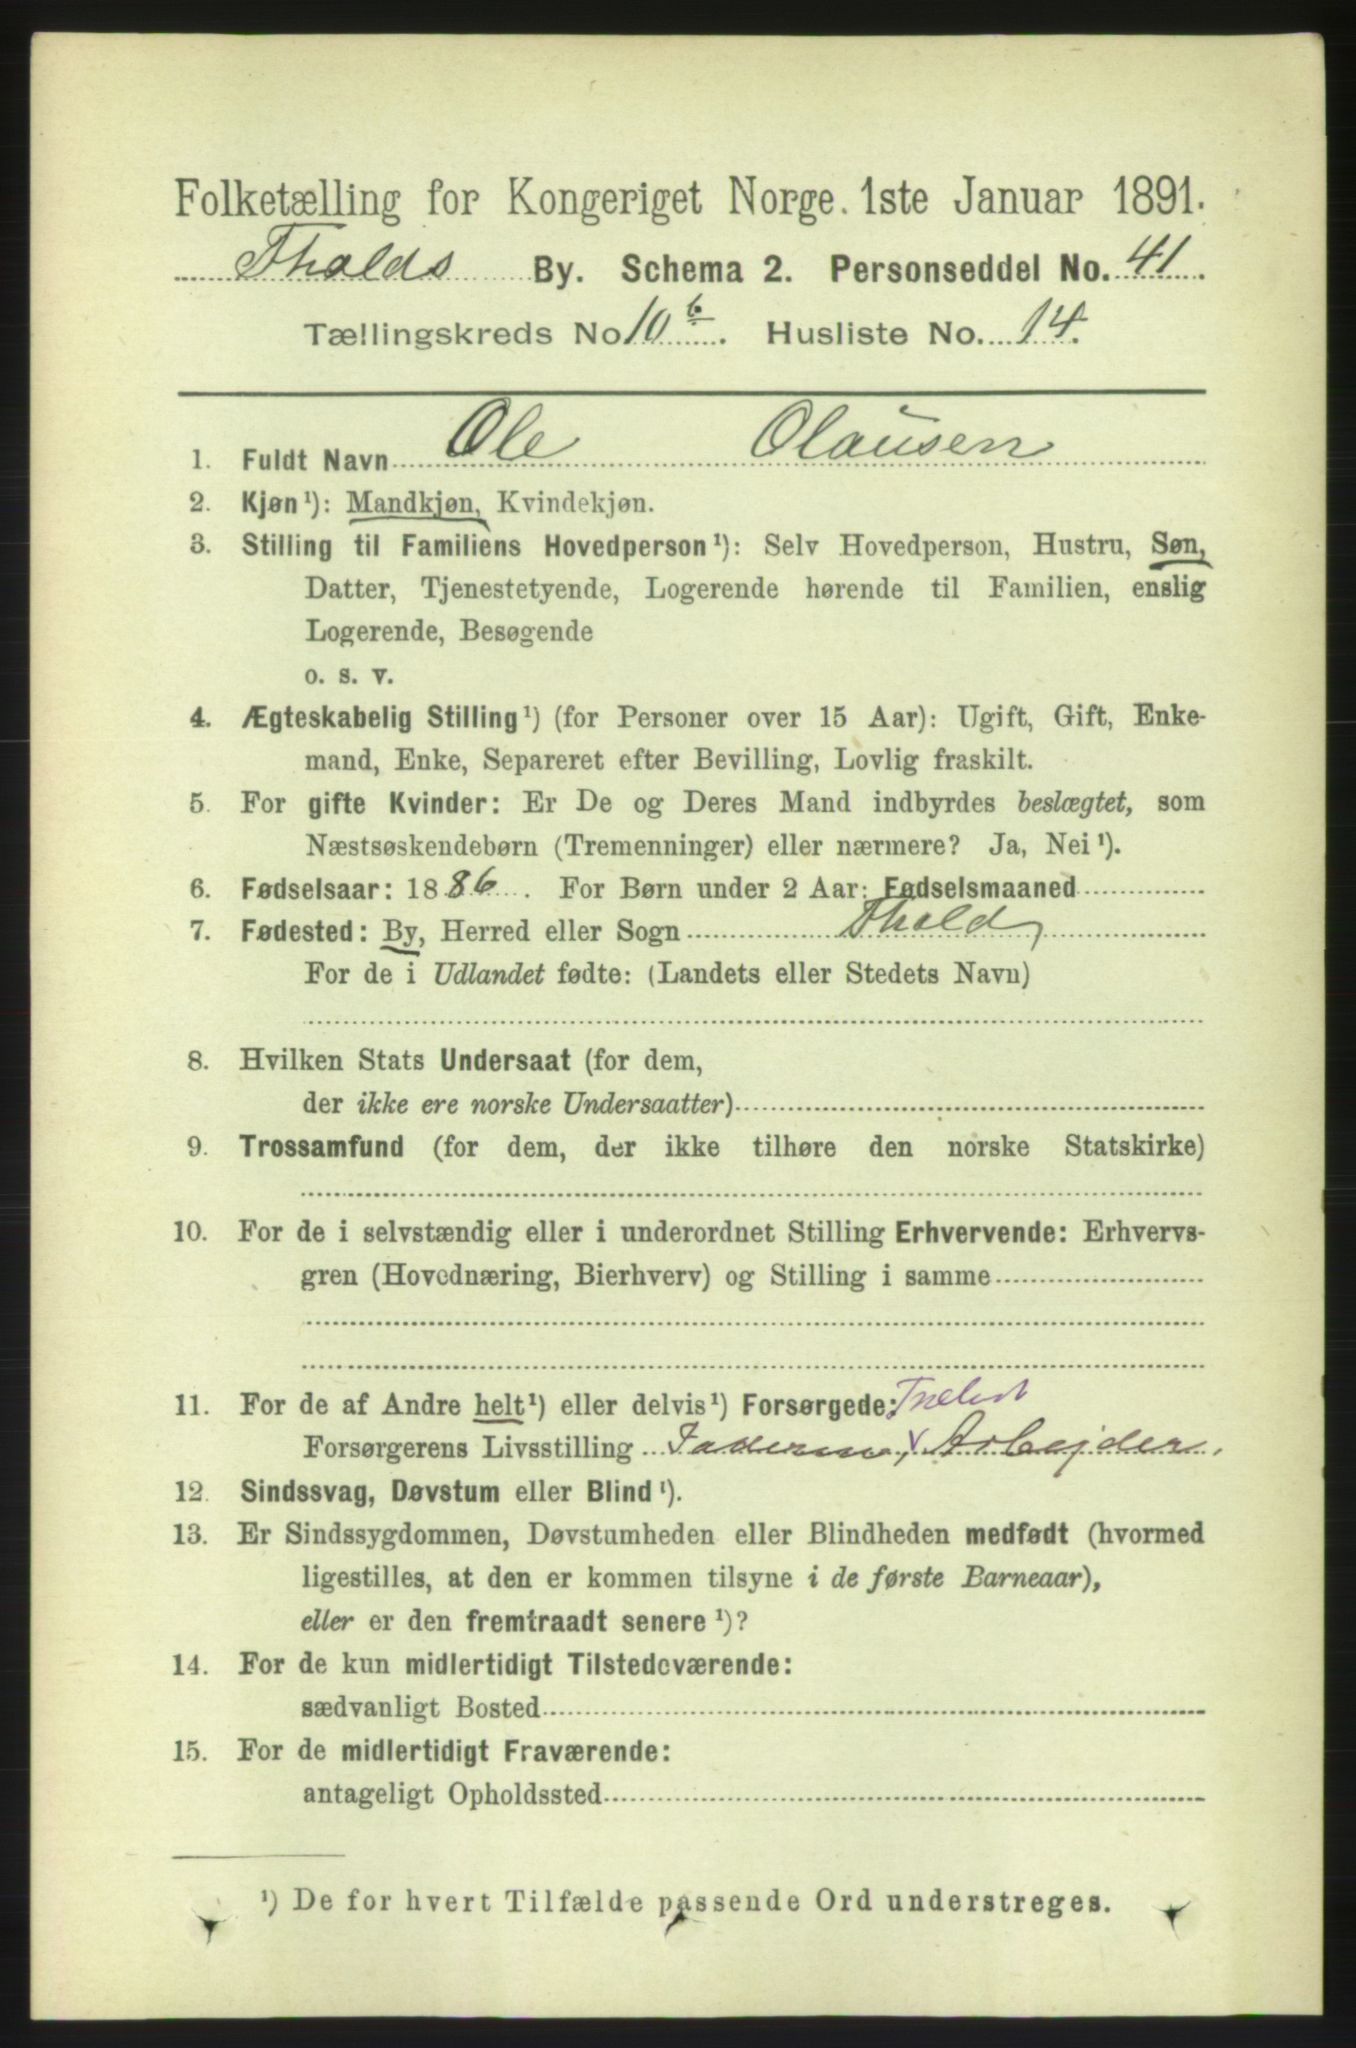 Folketælling for Kongeriget Norge. 1ste Januar 1891.
Fhalds By. Schema 2. Personseddel No. 41.
Tællingskreds No 10 b. Husliste No. 14.
1. Fuldt Navn Ole Olausen
2. Kjøn¹): Mandkjøn, Kvindekjøn.
3. Stilling til Familiens Hovedperson¹): Selv Hovedperson, Hustru, Søn,
Datter, Tjenestetyende, Logerende hørende til Familien, enslig
Logerende, Besøgende
o. s. v.
4. Ægteskabelig Stilling¹) (for Personer over 15 Aar): Ugift, Gift, Enke-
mand, Enke, Separeret efter Bevilling, Lovlig fraskilt.
5. For gifte Kvinder: Er De og Deres Mand indbyrdes beslægtet, som
Næstsøskendebørn (Tremenninger) eller nærmere? Ja, Nei¹).
6. Fødselsaar: 1886. For Børn under 2 Aar: Fødselsmaaned
7. Fødested: By, Herred eller Sogn Fhald
For de i Udlandet fødte: (Landets eller Stedets Navn)
8. Hvilken Stats Undersaat (for dem,
der ikke ere norske Undersaatter)
9. Trossamfund (for dem, der ikke tilhøre den norske Statskirke)
10. For de i selvstændig eller i underordnet Stilling Erhvervende: Erhvervs-
gren (Hovednæring, Bierhverv) og Stilling i samme
11. For de af Andre helt¹) eller delvis¹) Forsørgede:
Forsørgerens Livsstilling Faderen, Arbejder.
12. Sindssvag, Døvstum eller Blind¹).
13. Er Sindssygdommen, Døvstumheden eller Blindheden medfødt (hvormed
ligestilles, at den er kommen tilsyne i de første Barneaar),
eller er den fremtraadt senere¹)?
14. For de kun midlertidigt Tilstedeværende:
sædvanligt Bosted
15. For de midlertidigt Fraværende:
antageligt Opholdssted
¹) De for hvert Tilfælde passende Ord understreges.